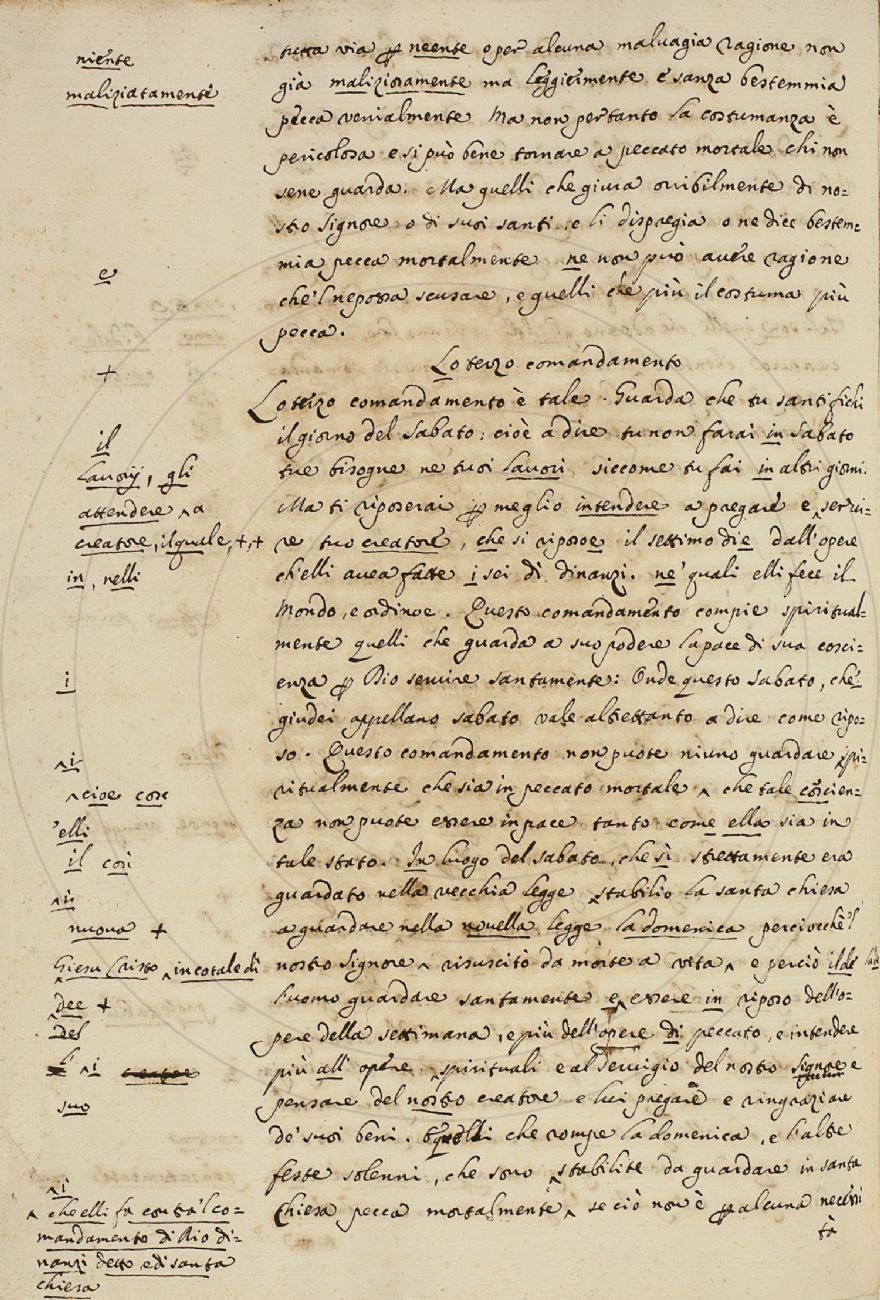 niente
maliziatamente
e
+
il
Lavorij, gli
attendere ^ a
creatore, il quale, +, +
in, nelli
i
^ i
^ cioe cosc
'elli
il così
^ i
nuova +
Giesu Cristo ^ in cotale dì
dee +
del
l' ^ i
suo
^ i
^ che elli fa contra'l co=
mandamento di Dio di=
nanzi detto e di santa
chiesa
tutta via ꝑ neente o per alcuna malvagia ragione non
già maliziosamente ma leggiermente e sanza bestemmia
pecca venialmente Ma non pertanto la costumanza è
pericolosa e si può bene tornare a peccato mortale chi non
sene guarda. Ma quelli che giura orribilmente di no=
stro Signore o di suoi santi, e li dispregia o ne dice bestem=
mia pecca mortalmente ne non può avere ragione
che'l ne possa scusare, e quelli che più il costuma più
pecca.
Lo terzo comandamento
Lo terzo comandamento è tale. Guarda che tu santifichi
il giorno del Sabato: cioè a dire tu non farai in Sabato
tue bisogne ne tuoi Lavori siccome tu fai in altri giorni.
Ma ti riposerai ꝑ meglio intendere a pregare e ^ servi=
re tuo creatore, che si riposoe il settimo die dall'opere
ch'elli avea fatte i sei dì dinanzi. ne' quali elli fece il
Mondo, e ordinoe. Questo comandamento compie spiritual=
mente quelli che guarda a suo podere la pace di sua cosci=
enza ꝑ Dio servire santamente: Onde questo Sabato, che
giudei appellano sabato vale altrettanto a dire come ripo=
so. Questo comandamento non puote niuno guardare ^ spi=
ritualmente che sia in peccato mortale ^ che tale coscien=
za non puote essere in pace tanto come ella sia in
tale stato. In luogo del sabato, che sì strettamente era
guardato nella vecchia legge ^ stabilio la santa chiesa
a guardare nella novella legge la domenica perciocchè'l
nostro Signore ^ risuscitò da morte a vita ^ e perciò il dè
l'uomo guardare santamente e ^ essere in riposo dell'o=
pere della settimana, e più dell'opere di peccato, e intendere
più all' opere ^ spirituali e al servigio del nostro signore e
pensare del nostro creatore e lui pregare e ringraziare
de' suoi beni. E quelli che rompe la domenica, e l'altre
feste solenni, che sono ^ stabilite da guardare in santa
Chiesa pecca mortalmente ^ se ciò non è ꝑ alcuna necessi
tà